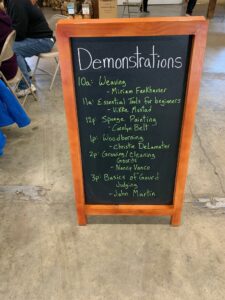 Demonstrations
10a: Weaving
- Miriam Fankhauser
11a: Essential Tools for beginners
- Mustad
12p: Sponge Painting
- Carolyn Belt
1p: Woodburning
- Christie DeLamater
2p: Growing/cleaning
Gourds
- Nancy Vance
3p: Basics of Gourd
Judging
- John Martin